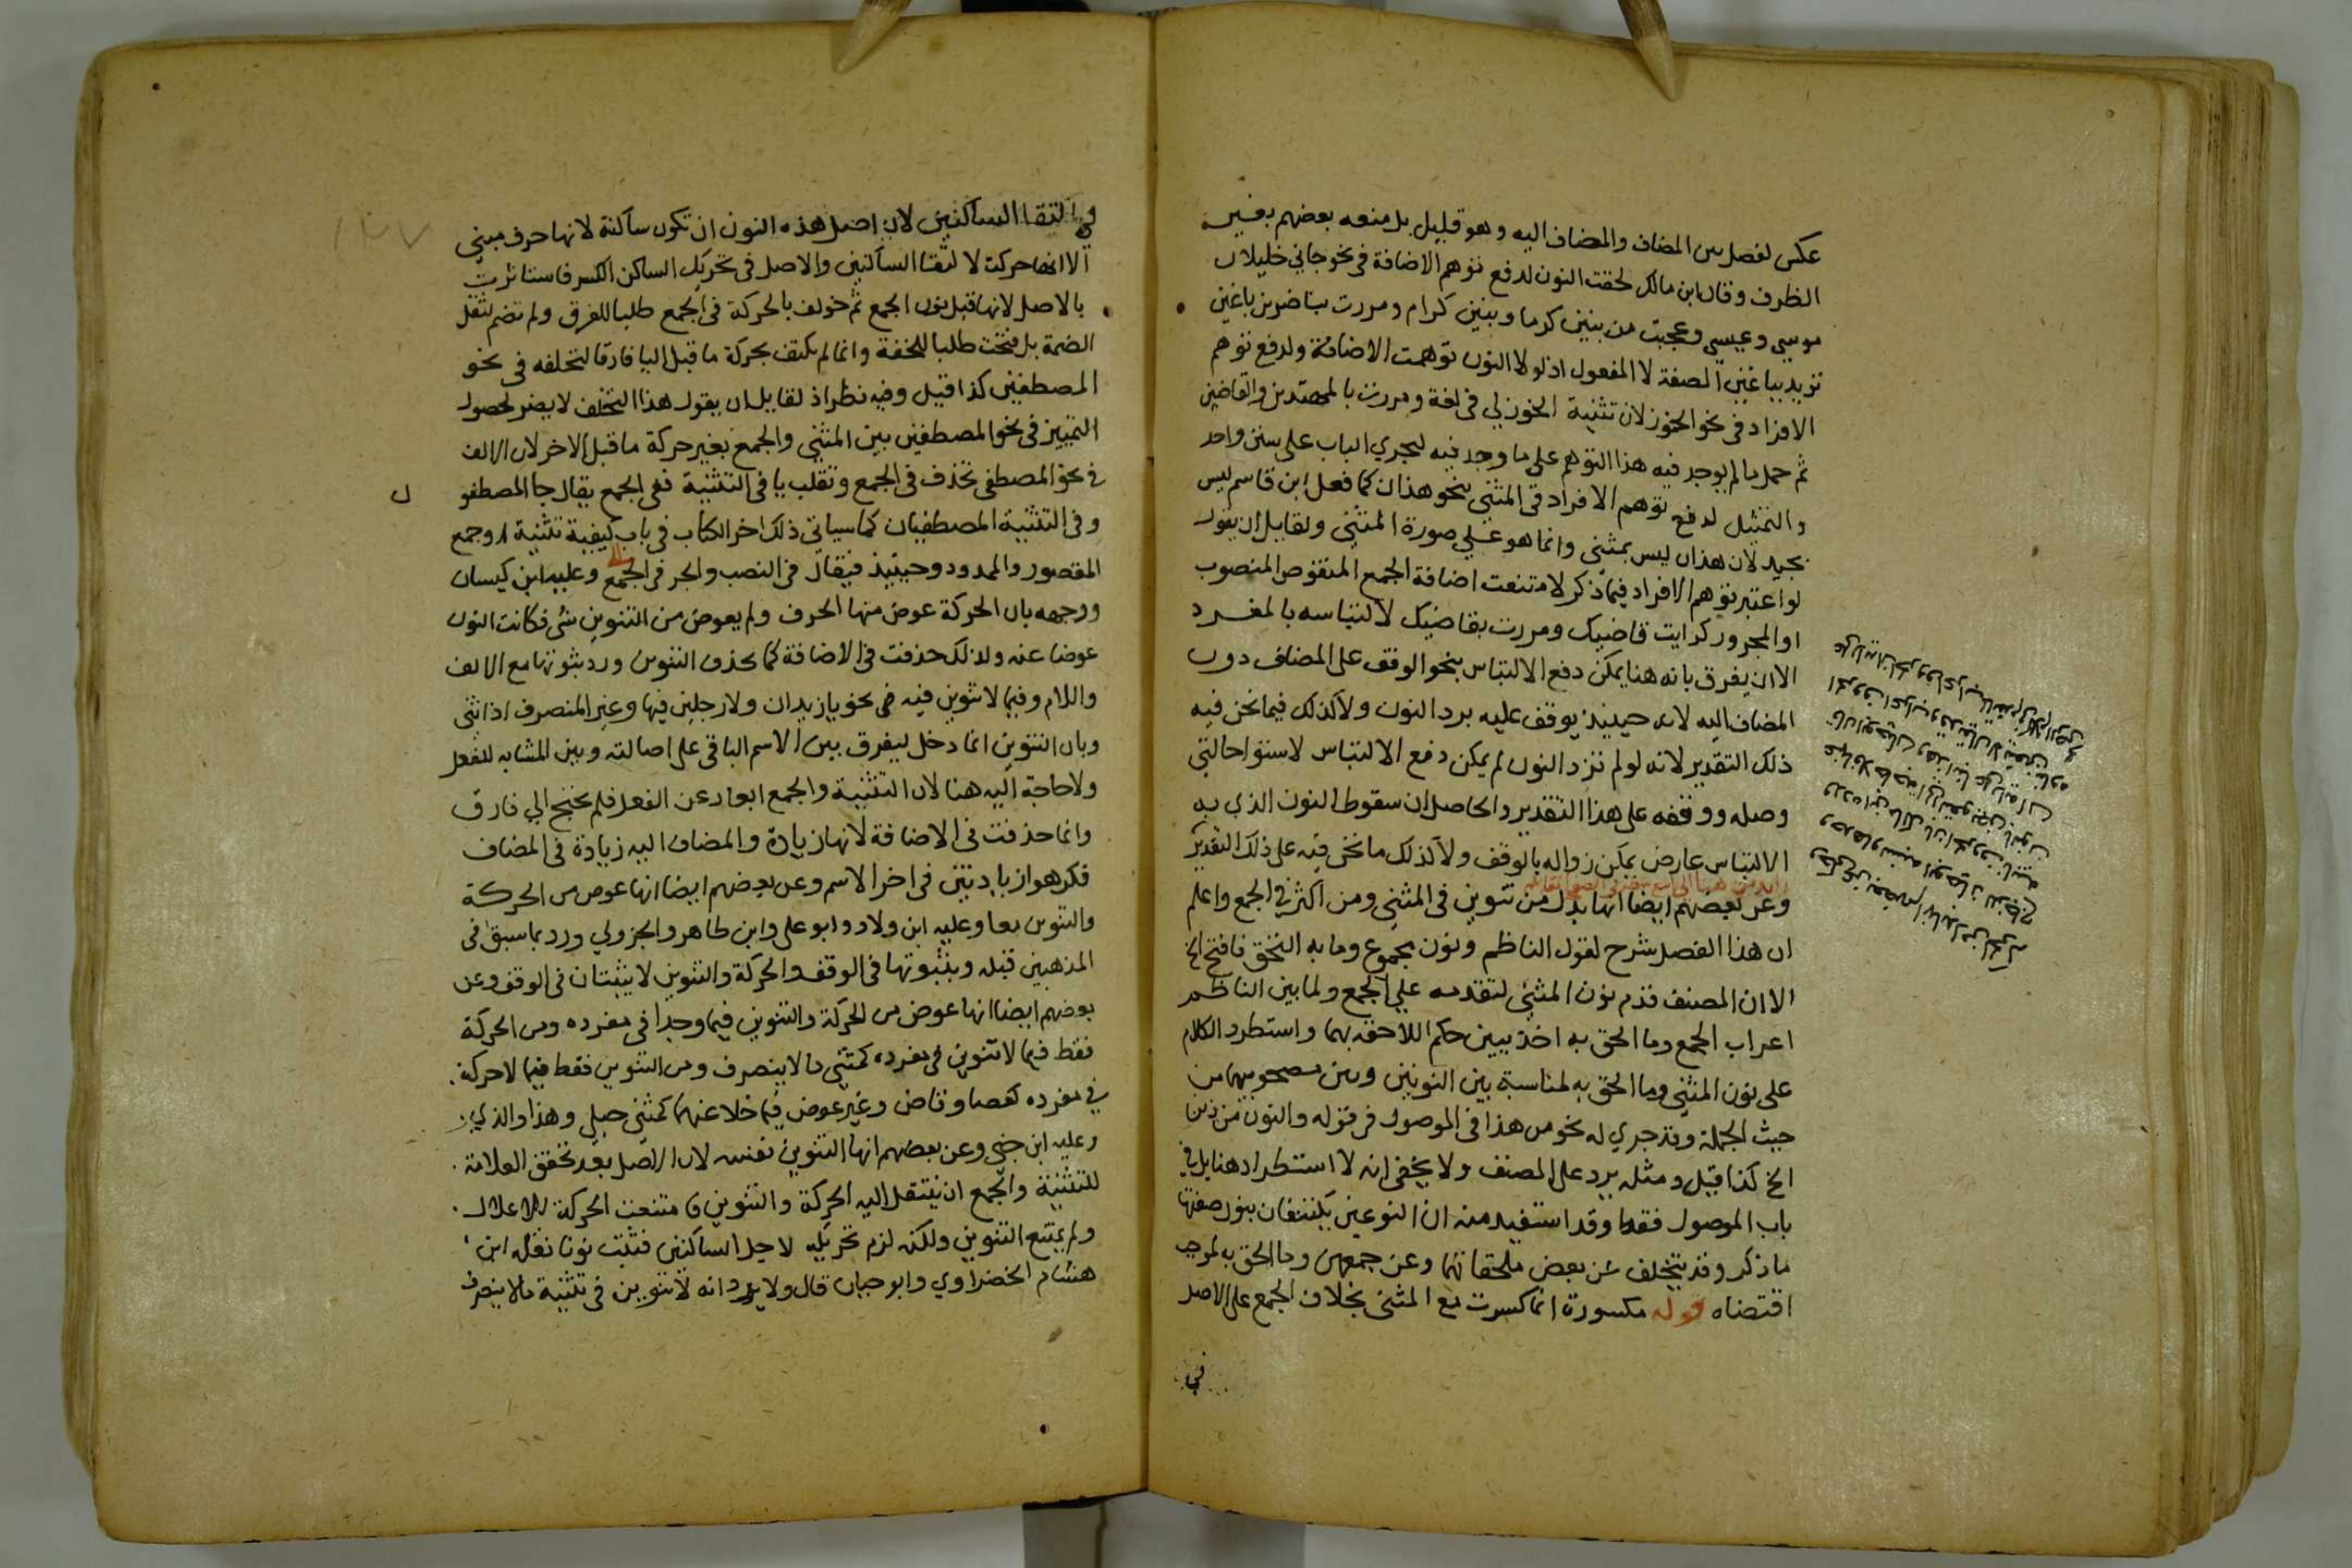 عكس لفصل بين المضاف والمضاف اليه وهو قليل بل منعه بعضهم بغير
الظرف وقال ابن مالك لحقت النون لدفع توهم الاضافة في نحو جاني خليلان
موسي وعيسي وعجبت من بنين كرما وبنين كرام ومررت بناصرين باغين
تزيد بباغين الصفة لا المفعول اذ لولا النون توهمت الاضافة ولدفع توهم
الافراد في نحو الخوزلان تثنية الخوزلي في لغة ومررت بالمهتدين والقاضين
ثم حمل ما لم يوجد فيه هذا التوهم على ما وجد فيه ليجري الباب على سنن واحد
والتمثيل لدفع توهم الافراد في المثنى بنحو هذان كما فعل ابن قاسم ليس
بجيد لان هذان ليس بمثنى وانما هو علي صورة المثنى ولقايل ان يقول
لو اعتبر توهم الافراد فيما ذكر لامتنعت اضافة الجمع المنقوص المنصوب
او المجرور كرايت قاضيك ومررت بقاضيك لالتباسه بالمفرد
الا ان يفرق بانه هنا يمكن دفع الالتباس بنحو الوقف على المضاف دون
المضاف اليه لانه حينيذ يوقف عليه برد النون ولا كذلك فيما نحن فيه
ذلك التقدير لانه لو لم تزد النون لم يمكن دفع الالتباس لاستوا حالتي
وصله ووقفه على هذا التقدير والحاصل ان سقوط النون الذي به
الالتباس عارض يمكن زواله بالوقف ولا كذلك ما نحن فيه على ذلك التقدير
وعن بعضهم ايضا انها بدل من تنوين في المثنى ومن اكثر في الجمع واعلم
ان هذا الفصل شرح لقول الناظم ونون مجموع وما به التحق فافتح الخ
الا ان المصنف قدم نون المثنى لتقدمه علي الجمع ولما بين الناظم
اعراب الجمع وما الحق به اخذ يبين حكم اللاحقه بهما واستطرد الكلام
على نون المثنى وما الحق به لمناسبة بين النونين وبين مصحوبيهما من
حيث الجملة وقد جري له نحو من هذا في الموصول في قوله والنون من ذين
الخ كذا قيل ومثله يرد على المصنف ولا يخفى انه لا استطراد هنا بل في
باب الموصول فقط وقد استفيد منه ان النوعين يكتنفان بنون صفتها
ما ذكر وقد يتخلف عن بعض ملحقاتهما وعن جمعهن وما الحق به لموجب
اقتضاه قوله مكسورة انما كسرت مع المثنى بخلاف الجمع على الاصل
في
في التقا الساكنين لان اصل هذه النون ان تكون ساكنة لانها حرف مبني
الا انها حركت لالتقا الساكنين والاصل في تحريك الساكن الكسر فاستاثرت
بالاصل لانها قبل نون الجمع ثم خولف بالحركة في الجمع طلبا للفرق ولم تضم لثقل
الضمة بل فتحت طلبا للخفة وانما لم يكتف بحركة ما قبل اليا فارقا لتخلفه في نحو
المصطفين كذا قيل وفيه نظر اذ لقايل ان يقول هذا التخلف لا يضر لحصول
التمييز في نحو المصطفين بين المثنى والجمع بغير حركة ما قبل الاخر لان الالف
في نحو المصطفى تحذف في الجمع وتقلب يا في التثنية ففي الجمع يقال جا المصطفو
ن
وفي التثنية المصطفيان كما سياتي ذلك اخر الكتاب في باب كيفية تثنية وجمع
المقصور والممدود وحينيذ فيقال في النصب والجر في الجمع وعليه ابن كيسان
ووجهه بان الحركة عوض منها الحرف ولم يعوض من التنوين شي فكانت النون
عوضا عنه ولذلك حذفت في الاضافة كما يحذف التنوين ورد بثبوتها مع الالف
واللام وفيما لا تنوين فيه في نحو يا زيدان ولا رجلين فيها وغير المنصرف اذا ثني
وبان التنوين انما دخل ليفرق بين الاسم الباقي على اصالته وبين المشابه للفعل
ولا حاجة اليه هنا لان التثنية والجمع ابعاد عن الفعل فلم يحتج الي فارق
وانما حذفت في الاضافة لانها زيادة والمضاف اليه زيادة في المضاف
فكرهوا زيادتين في اخر الاسم وعن بعضهم ايضا انها عوض من الحركة
والتنوين معا وعليه ابن ولاد وابو على وابن طاهر والجزولي ورد بما سبق في
المذهبين قبله وبثبوتها في الوقف والحركة والتنوين لا يثبتان في الوقف وعن
بعضهم ايضا انها عوض من الحركة والتنوين فيما وجدا في مفرده ومن الحركة
فقط فيما لا تنوين في مفرده كمثنى ما لا ينصرف ومن التنوين فقط فيما لا حركة
في مفرده كعصا وقاض وغير عوض فيما خلا عنهما كمثنى حبلي وهذا والذي
وعليه ابن جني وعن بعضهم انها التنوين نفسه لان الاصل بعد تحقق العلامة
للتثنية والجمع ان ينتقل اليه الحركة والتنوين فامتنعت الحركة للاعلال
ولم يمتنع التنوين ولكنه لزم تحريكه لاجل الساكنين فثبت نونا نقله ابن
هشام الخضراوي وابو حيان قال ولا يرد انه لا تنوين في تثنية ما لا ينصرف